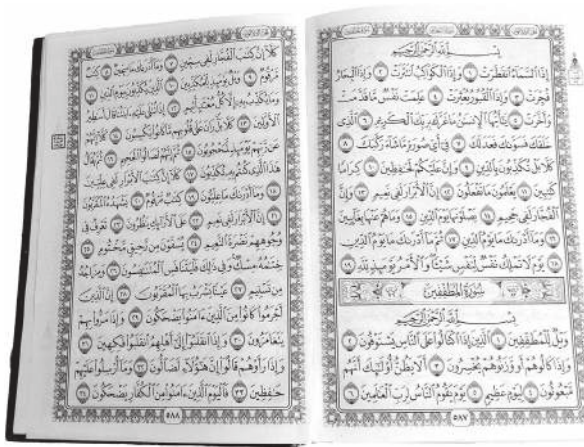 بِسْمِ اللَّهِ الرَّحْمَٰنِ الرَّحِيمِ
إِذَا السَّمَاءُ انفَطَرَتْ ١ وَإِذَا الْكَوَاكِبُ انتَثَرَتْ ٢ وَإِذَا الْبِحَارُ
فُجِّرَتْ ٣ وَإِذَا الْقُبُورُ بُعْثِرَتْ ٤ عَلِمَتْ نَفْسٌ مَّا قَدَّمَتْ
وَأَخَّرَتْ ٥ يَٰأَيُّهَا الْإِنسَٰنُ مَا غَرَّكَ بِرَبِّكَ الْكَرِيمِ ٦ الَّذِي
خَلَقَكَ فَسَوَّىٰكَ فَعَدَلَكَ ٧ فِي أَيِّ صُورَةٍ مَّا شَاءَ رَكَّبَكَ ٨
كَلَّا بَلْ تُكَذِّبُونَ بِالدِّينِ ٩ وَإِنَّ عَلَيْكُمْ لَحَٰفِظِينَ ١٠ كِرَامًا
كَٰتِبِينَ ١١ يَعْلَمُونَ مَا تَفْعَلُونَ ١٢ إِنَّ الْأَبْرَارَ لَفِي نَعِيمٍ ١٣ وَإِنَّ
الْفُجَّارَ لَفِي جَحِيمٍ ١٤ يَصْلَوْنَهَا يَوْمَ الدِّينِ ١٥ وَمَا هُمْ عَنْهَا بِغَائِبِينَ
١٦ وَمَا أَدْرَىٰكَ مَا يَوْمُ الدِّينِ ١٧ ثُمَّ مَا أَدْرَىٰكَ مَا يَوْمُ الدِّينِ
١٨ يَوْمَ لَا تَمْلِكُ نَفْسٌ لِّنَفْسٍ شَيْئًا وَالْأَمْرُ يَوْمَئِذٍ لِّلَّهِ ١٩
سُورَةُ الْمُطَفِّفِينَ
بِسْمِ اللَّهِ الرَّحْمَٰنِ الرَّحِيمِ
وَيْلٌ لِّلْمُطَفِّفِينَ ١ الَّذِينَ إِذَا اكْتَالُوا عَلَى النَّاسِ يَسْتَوْفُونَ ٢
وَإِذَا كَالُوهُمْ أَو وَّزَنُوهُمْ يُخْسِرُونَ ٣ أَلَا يَظُنُّ أُولَٰئِكَ أَنَّهُم
مَّبْعُوثُونَ ٤ لِيَوْمٍ عَظِيمٍ ٥ يَوْمَ يَقُومُ النَّاسُ لِرَبِّ الْعَٰلَمِينَ ٦
٥٨٧
كَلَّا إِنَّ كِتَٰبَ الْفُجَّارِ لَفِي سِجِّينٍ ٧ وَمَا أَدْرَىٰكَ مَا سِجِّينٌ ٨ كِتَٰبٌ
مَّرْقُومٌ ٩ وَيْلٌ يَوْمَئِذٍ لِّلْمُكَذِّبِينَ ١٠ الَّذِينَ يُكَذِّبُونَ بِيَوْمِ الدِّينِ ١١
وَمَا يُكَذِّبُ بِهِ إِلَّا كُلُّ مُعْتَدٍ أَثِيمٍ ١٢ إِذَا تُتْلَىٰ عَلَيْهِ ءَايَٰتُنَا قَالَ أَسَٰطِيرُ
الْأَوَّلِينَ ١٣ كَلَّا بَلْ رَانَ عَلَىٰ قُلُوبِهِم مَّا كَانُوا يَكْسِبُونَ ١٤ كَلَّا إِنَّهُمْ
عَن رَّبِّهِمْ يَوْمَئِذٍ لَّمَحْجُوبُونَ ١٥ ثُمَّ إِنَّهُمْ لَصَالُوا الْجَحِيمِ ١٦ ثُمَّ يُقَالُ
هَٰذَا الَّذِي كُنتُم بِهِ تُكَذِّبُونَ ١٧ كَلَّا إِنَّ كِتَٰبَ الْأَبْرَارِ لَفِي عِلِّيِّينَ
١٨ وَمَا أَدْرَىٰكَ مَا عِلِّيُّونَ ١٩ كِتَٰبٌ مَّرْقُومٌ ٢٠ يَشْهَدُهُ الْمُقَرَّبُونَ
٢١ إِنَّ الْأَبْرَارَ لَفِي نَعِيمٍ ٢٢ عَلَى الْأَرَائِكِ يَنظُرُونَ ٢٣ تَعْرِفُ فِي
وُجُوهِهِمْ نَضْرَةَ النَّعِيمِ ٢٤ يُسْقَوْنَ مِن رَّحِيقٍ مَّخْتُومٍ ٢٥
خِتَٰمُهُ مِسْكٌ وَفِي ذَٰلِكَ فَلْيَتَنَافَسِ الْمُتَنَٰفِسُونَ ٢٦ وَمِزَاجُهُ
مِن تَسْنِيمٍ ٢٧ عَيْنًا يَشْرَبُ بِهَا الْمُقَرَّبُونَ ٢٨ إِنَّ الَّذِينَ
أَجْرَمُوا كَانُوا مِنَ الَّذِينَ ءَامَنُوا يَضْحَكُونَ ٢٩ وَإِذَا مَرُّوا بِهِمْ
يَتَغَامَزُونَ ٣٠ وَإِذَا انقَلَبُوا إِلَىٰ أَهْلِهِمُ انقَلَبُوا فَكِهِينَ ٣١
وَإِذَا رَأَوْهُمْ قَالُوا إِنَّ هَٰؤُلَاءِ لَضَالُّونَ ٣٢ وَمَا أُرْسِلُوا عَلَيْهِمْ
حَٰفِظِينَ ٣٣ فَالْيَوْمَ الَّذِينَ ءَامَنُوا مِنَ الْكُفَّارِ يَضْحَكُونَ ٣٤
٥٨٨